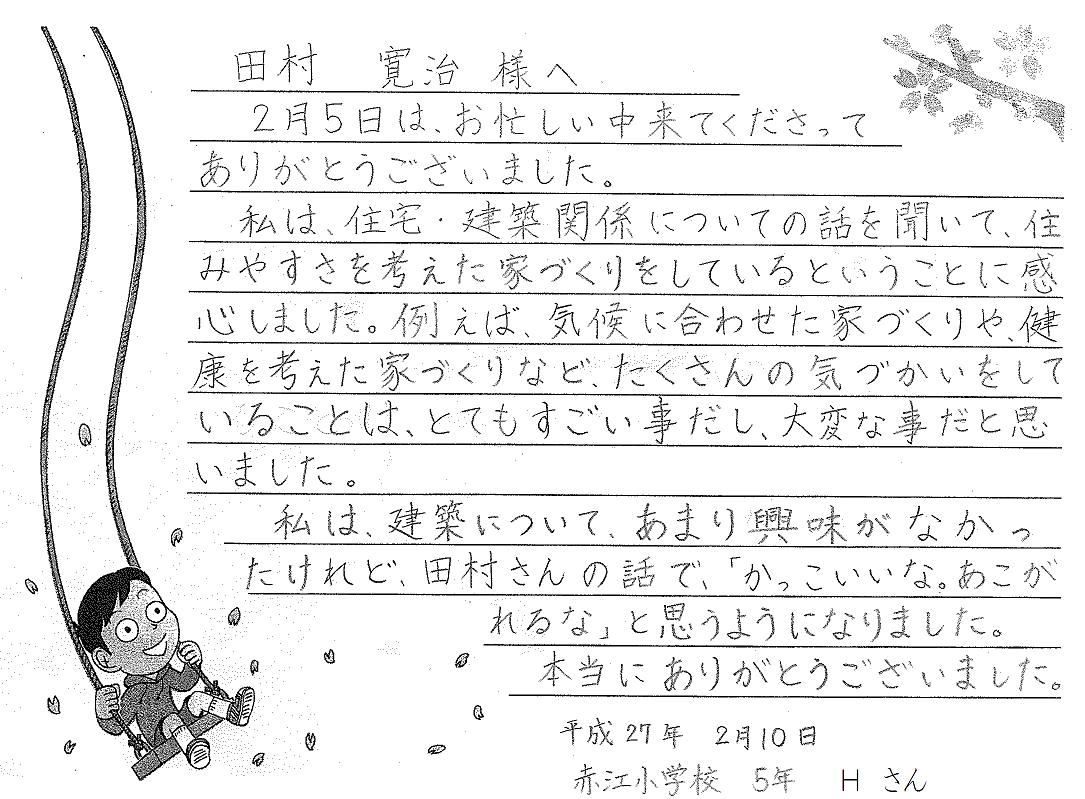 田村 寛治 様へ
2月5日は、お忙しい中来てくださって
ありがとうございました。
私は、住宅・建築関係についての話を聞いて、住
みやすさを考えた家づくりをしているということに感
心しました。例えば、気候に合わせた家づくりや、健
康を考えた家づくりなど、たくさんの気づかいをして
いることは、とてもすごい事だし、大変な事だと思
いました。
私は、建築について、あまり興味がなかっ
たけれど、田村さんの話で、「かっこいいな。あこが
れるな」と思うようになりました。
本当にありがとうございました。
平成27年 2月10日
赤江小学校 5年 H さん